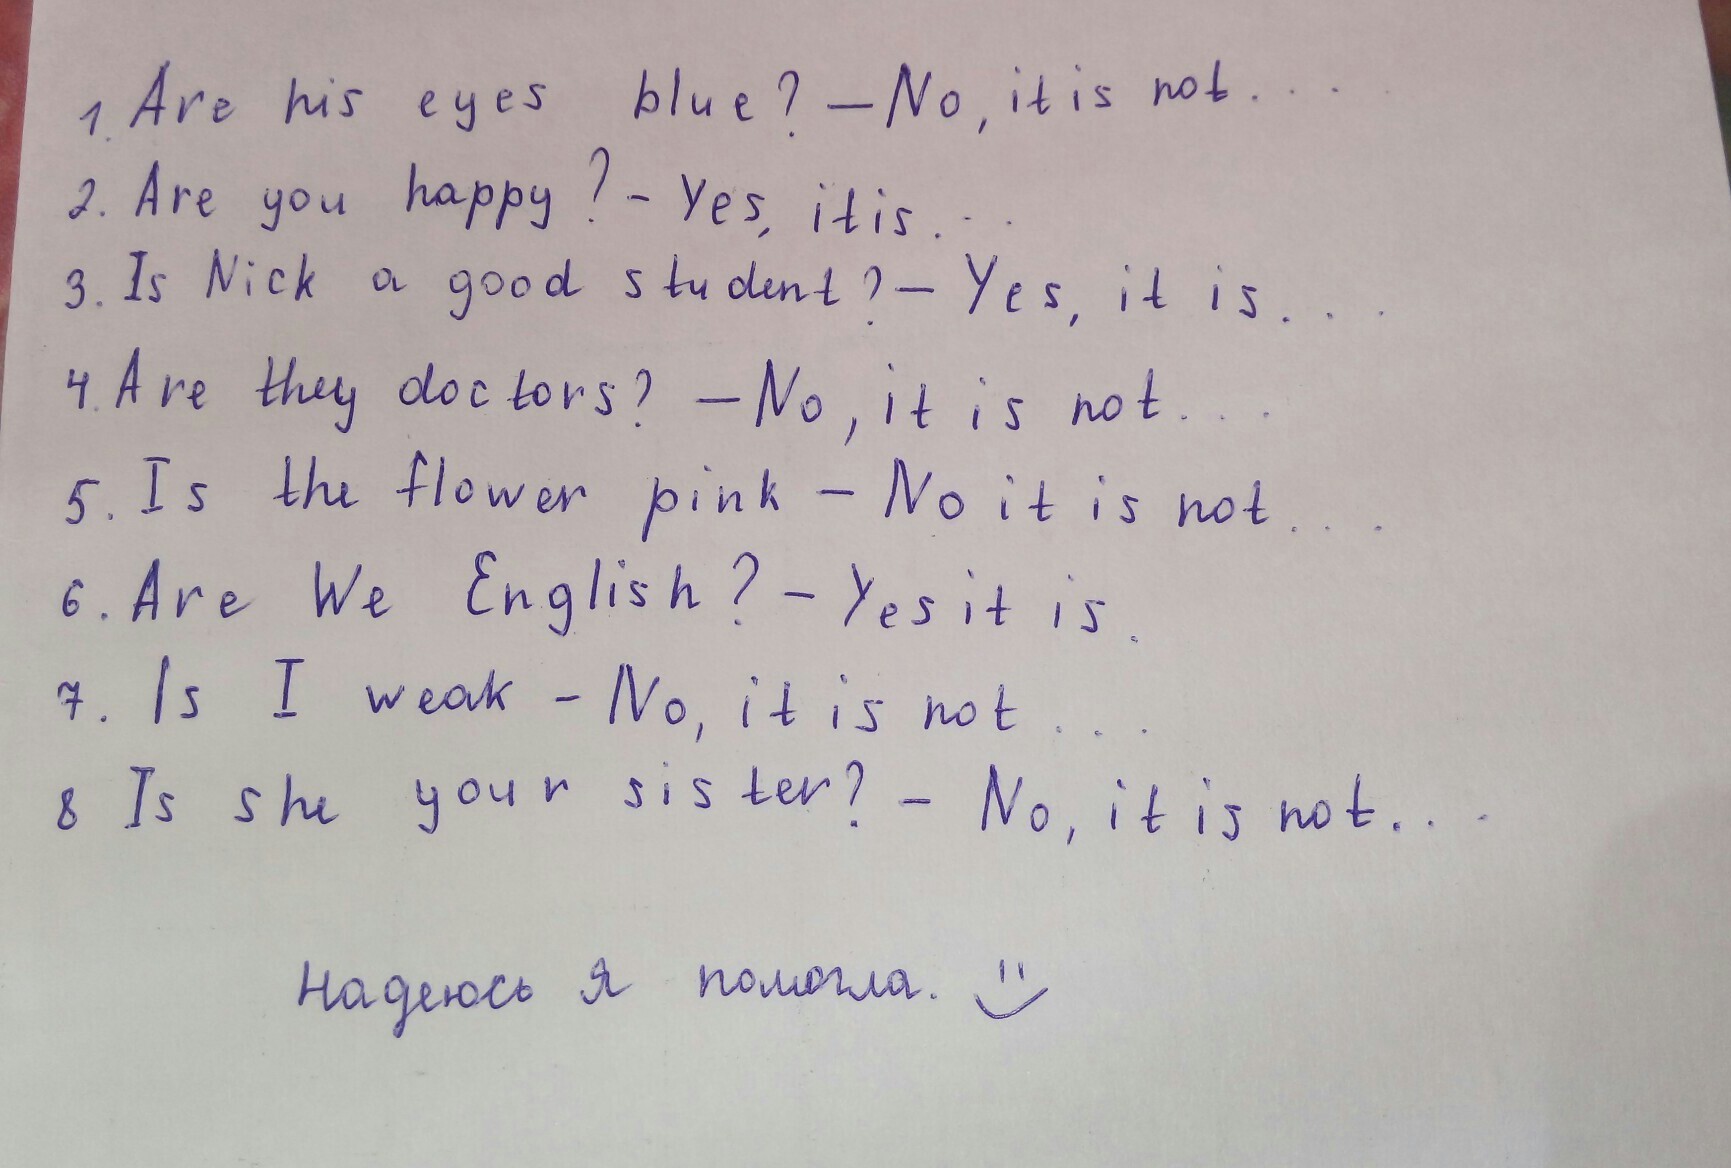 1. Are his eyes blue? – No, it is not....
2. Are you happy? – Yes, it is...
3. Is Nick a good student? – Yes, it is...
4. Are they doctors? – No, it is not...
5. Is the flower pink – No it is not...
6. Are We English? – Yes it is.
7. Is I weak – No, it is not...
8 Is she your sister? – No, it is not...
Надеюсь я помогла.